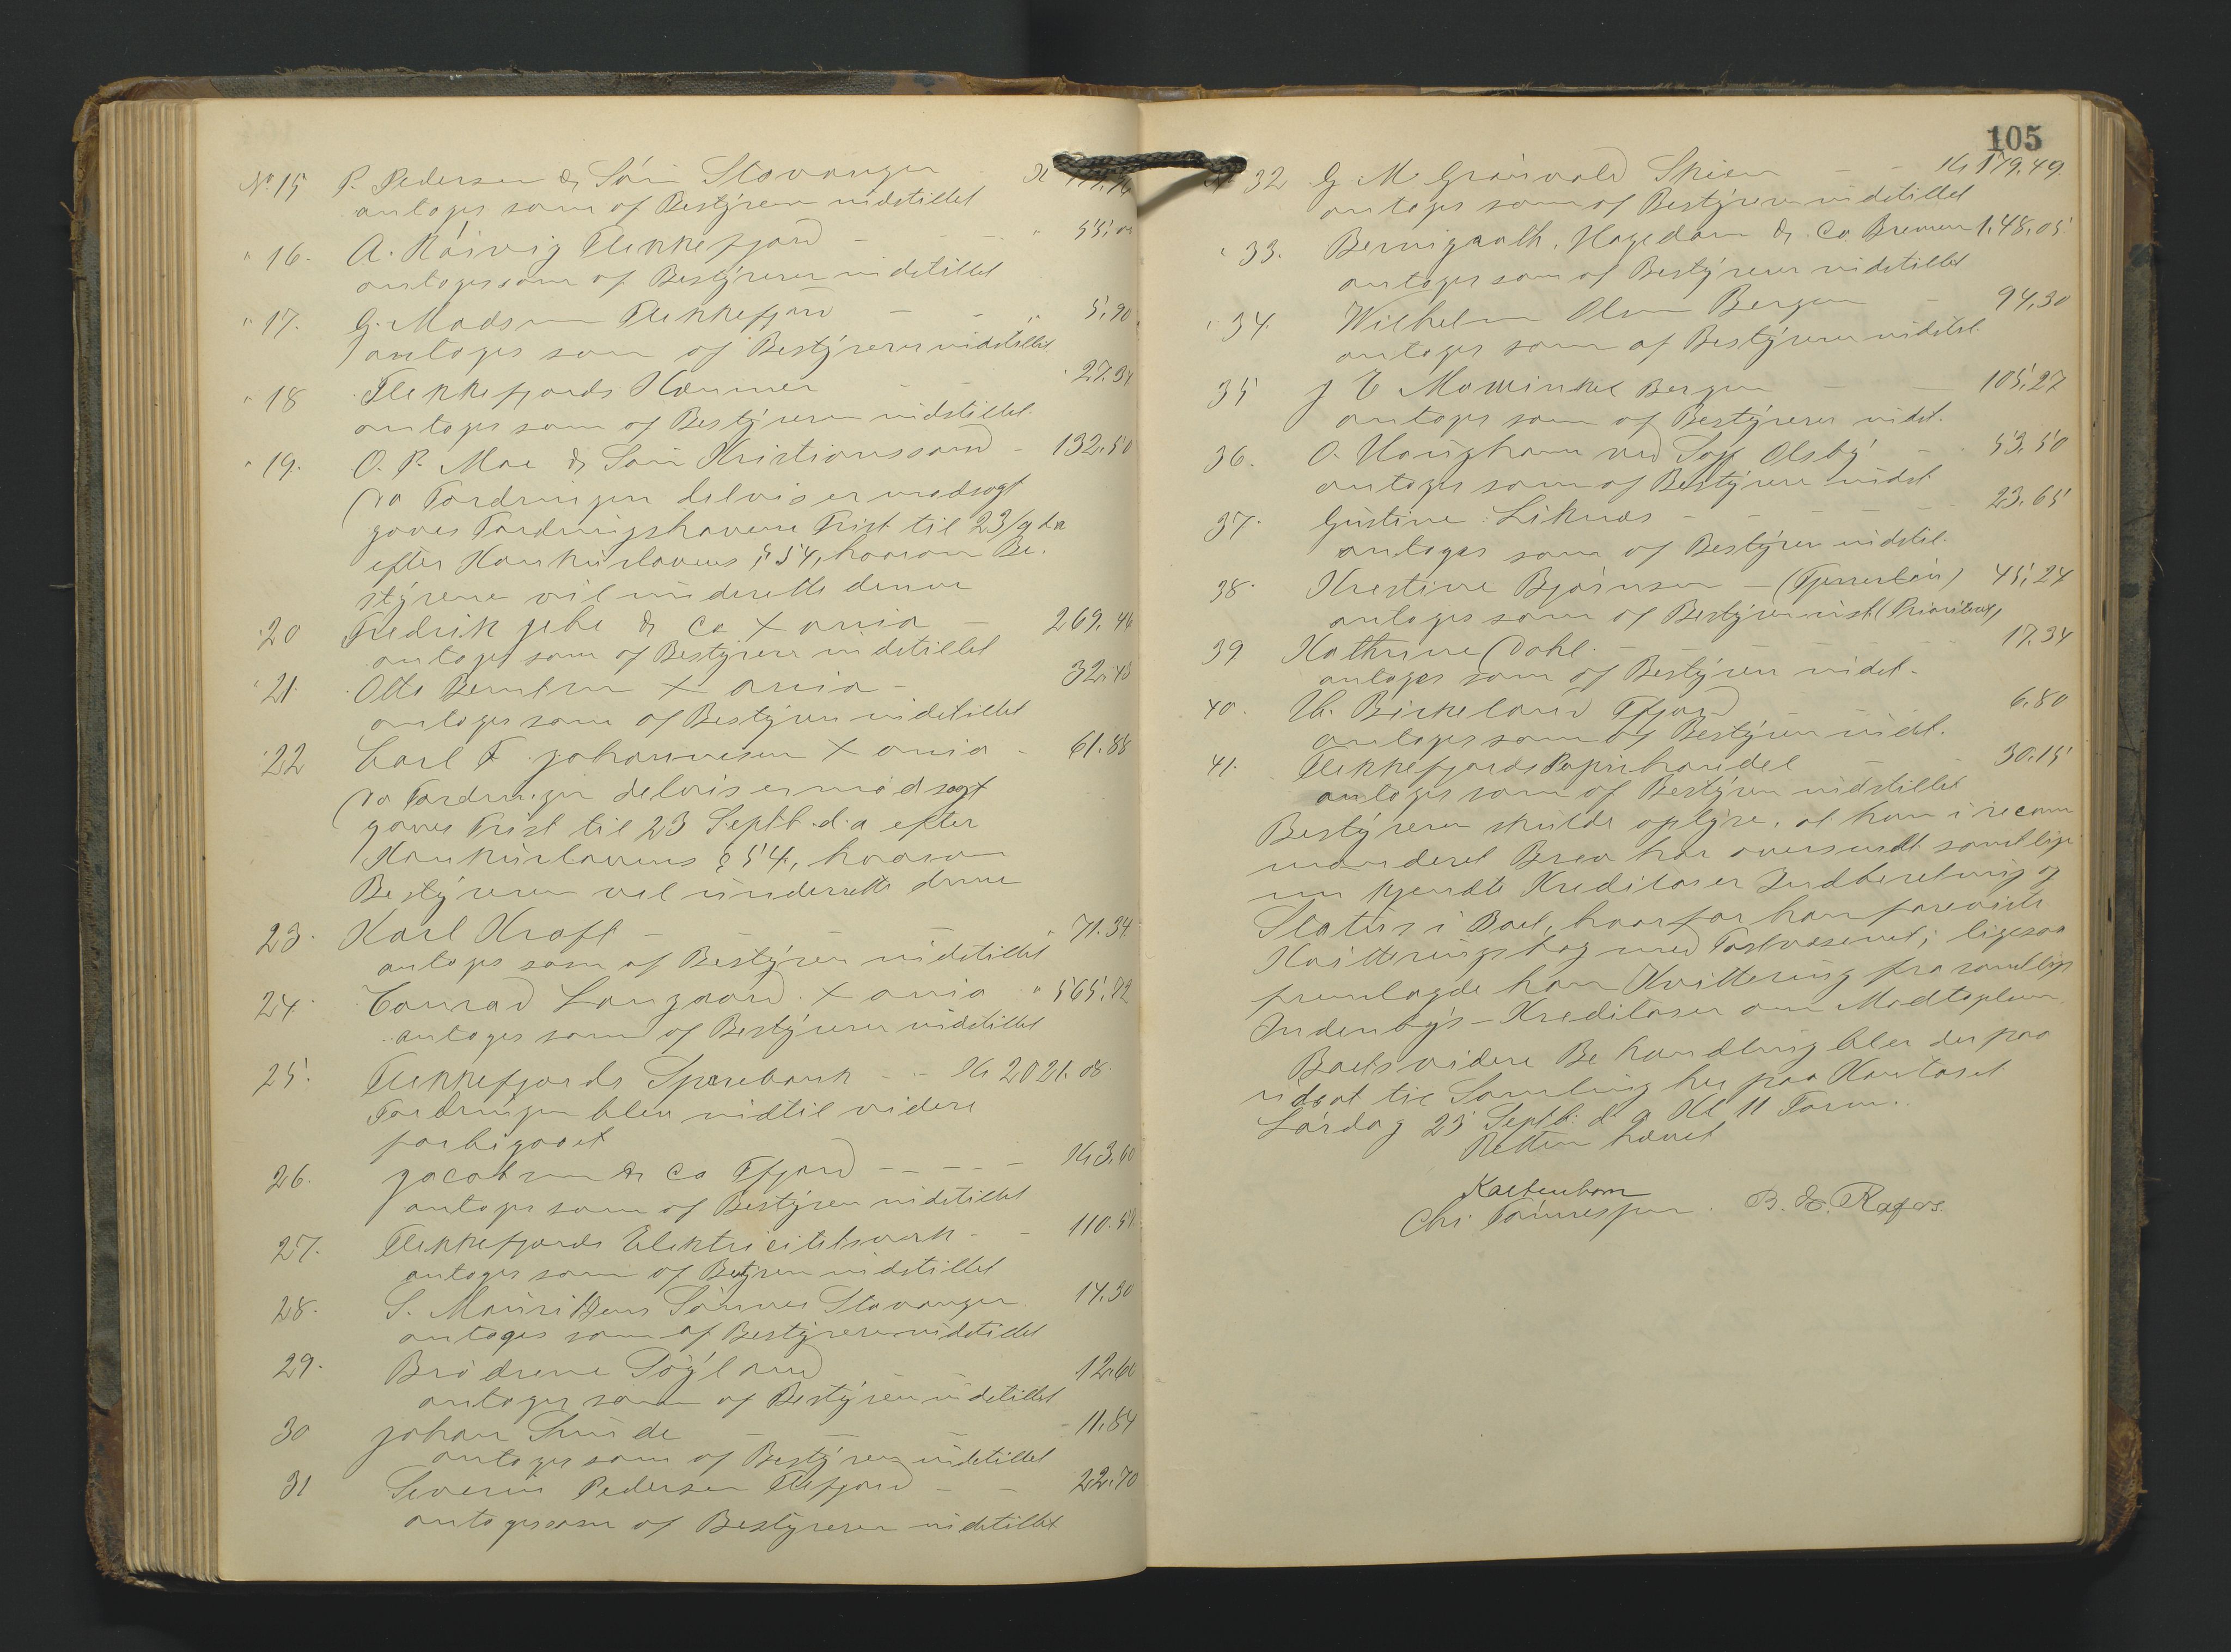 No 15 P. Pedersen & Søn Stavanger - Kr
antages som af Bestyreren indstillet
" 16. A. Röivig Flekkefjord - - - "
antages som af Bestyreren indstillet
" 17. G. Madsen Flekkefjord - - " 5,90
antages som af Bestyreren indstillet
" 18 Flekkefjords Kæmner - - " 27.34
antages som af Bestyreren indstillet
" 19. O. P. Moe & Søn Kristianssand - 132,50
Da Fordringen delvis er modsagt
gaves Fordringshaverne Frist til 23/9 da
efter Konkurslovens § 54, hvorom Be-
styreren vil underrette denne
" 20 Fredrik Jebe & Co Xania - 269,46
antages som af Bestyreren indstillet
" 21. Otto Berntsen Xania - 32,43
antages som af Bestyreren indstillet
" 22 Carl F. Johannesen Xania - 61.88
Da Fordringen delvis er modsagt
gaves Frist til 23 Septb. d.a efter
Konkurslovens § 54, hvorom
Bestyreren vil underrette denne
23. Karl Kraft - - - - " 71.34
antages som af Bestyreren indstillet
24. Conrad Langaard. Xania " 565,82
antages som af Bestyreren indstillet
25. Flekkefjords Sparebank - - Kr 2021.08.
Fordringen blev indtil videre
forbigaaet
26. Jacobsen & Co Ffjord - - - - Kr 3,60
antages som af Bestyreren indstillet
27. Flekkefjords Elektricitetsværk - - 110.51
antages som af Bestyreren indstillet
28. S. Mauritzens Sønner Stavanger 14.30
antages som af Bestyreren indstillet
29. Brødrene Søyland 12.60
antages som af Bestyreren indstillet
30 Johan Sunde - - - 11.84
antages som af Bestyreren indstillet
31 Severin Pedersen Flefjord - - 22.70
antages som af Bestyreren indstillet
105
32 G. M. Grönvold Skien - - Kr 179,49.
antages som af Bestyreren indstillet
" 33. Hagedorn & Co. Bremen 148,05
antages som af Bestyreren indstillet
" 34. Wilhelm Olsen Bergen - 94,30
antages som af Bestyreren indstil.
35 J E Mowinkel Bergen - - 105,27
antages som af Bestyreren indst.
36. O. Haugham ved Sagf Olsby - 53,50
antages som af Bestyreren indst
37. Gustine Liknes - - - - 23.65
antages som af Bestyreren indstil.
38. Kristine Bjørnsen - (Tjenerløn) 45,24
antages som af Bestyreren inst. (Prioritets)
39 Kathrine Dahl - - - 17.34
antages som af Bestyreren indst.
40. Birkeland Ffjord 6.80
antages som af Bestyreren indst.
41. Flekkefjords Papirhandel - - 30.15
antages som af Bestyreren indstillet
Bestyreren skulde oplyse, at han i recom
manderet Brev har oversendt samtlige
nu kjendte Kreditorer Indberetning og
Status i Boet, hvorfor han foreviste
Kvitteringsbog med Postvæsenet; ligesaa
fremlagde han Kvittering fra samtlige
Indenbys-Kreditorer om Modtagelsen.
Boets videre Behandling blev derpaa
udsat til Samling her paa Kontoret
Lørdag 23 Septb. d a Kl 11 Form.
Retten hævet
Kaltenborn
Chr. Tönnessen. B. H. Rafos.